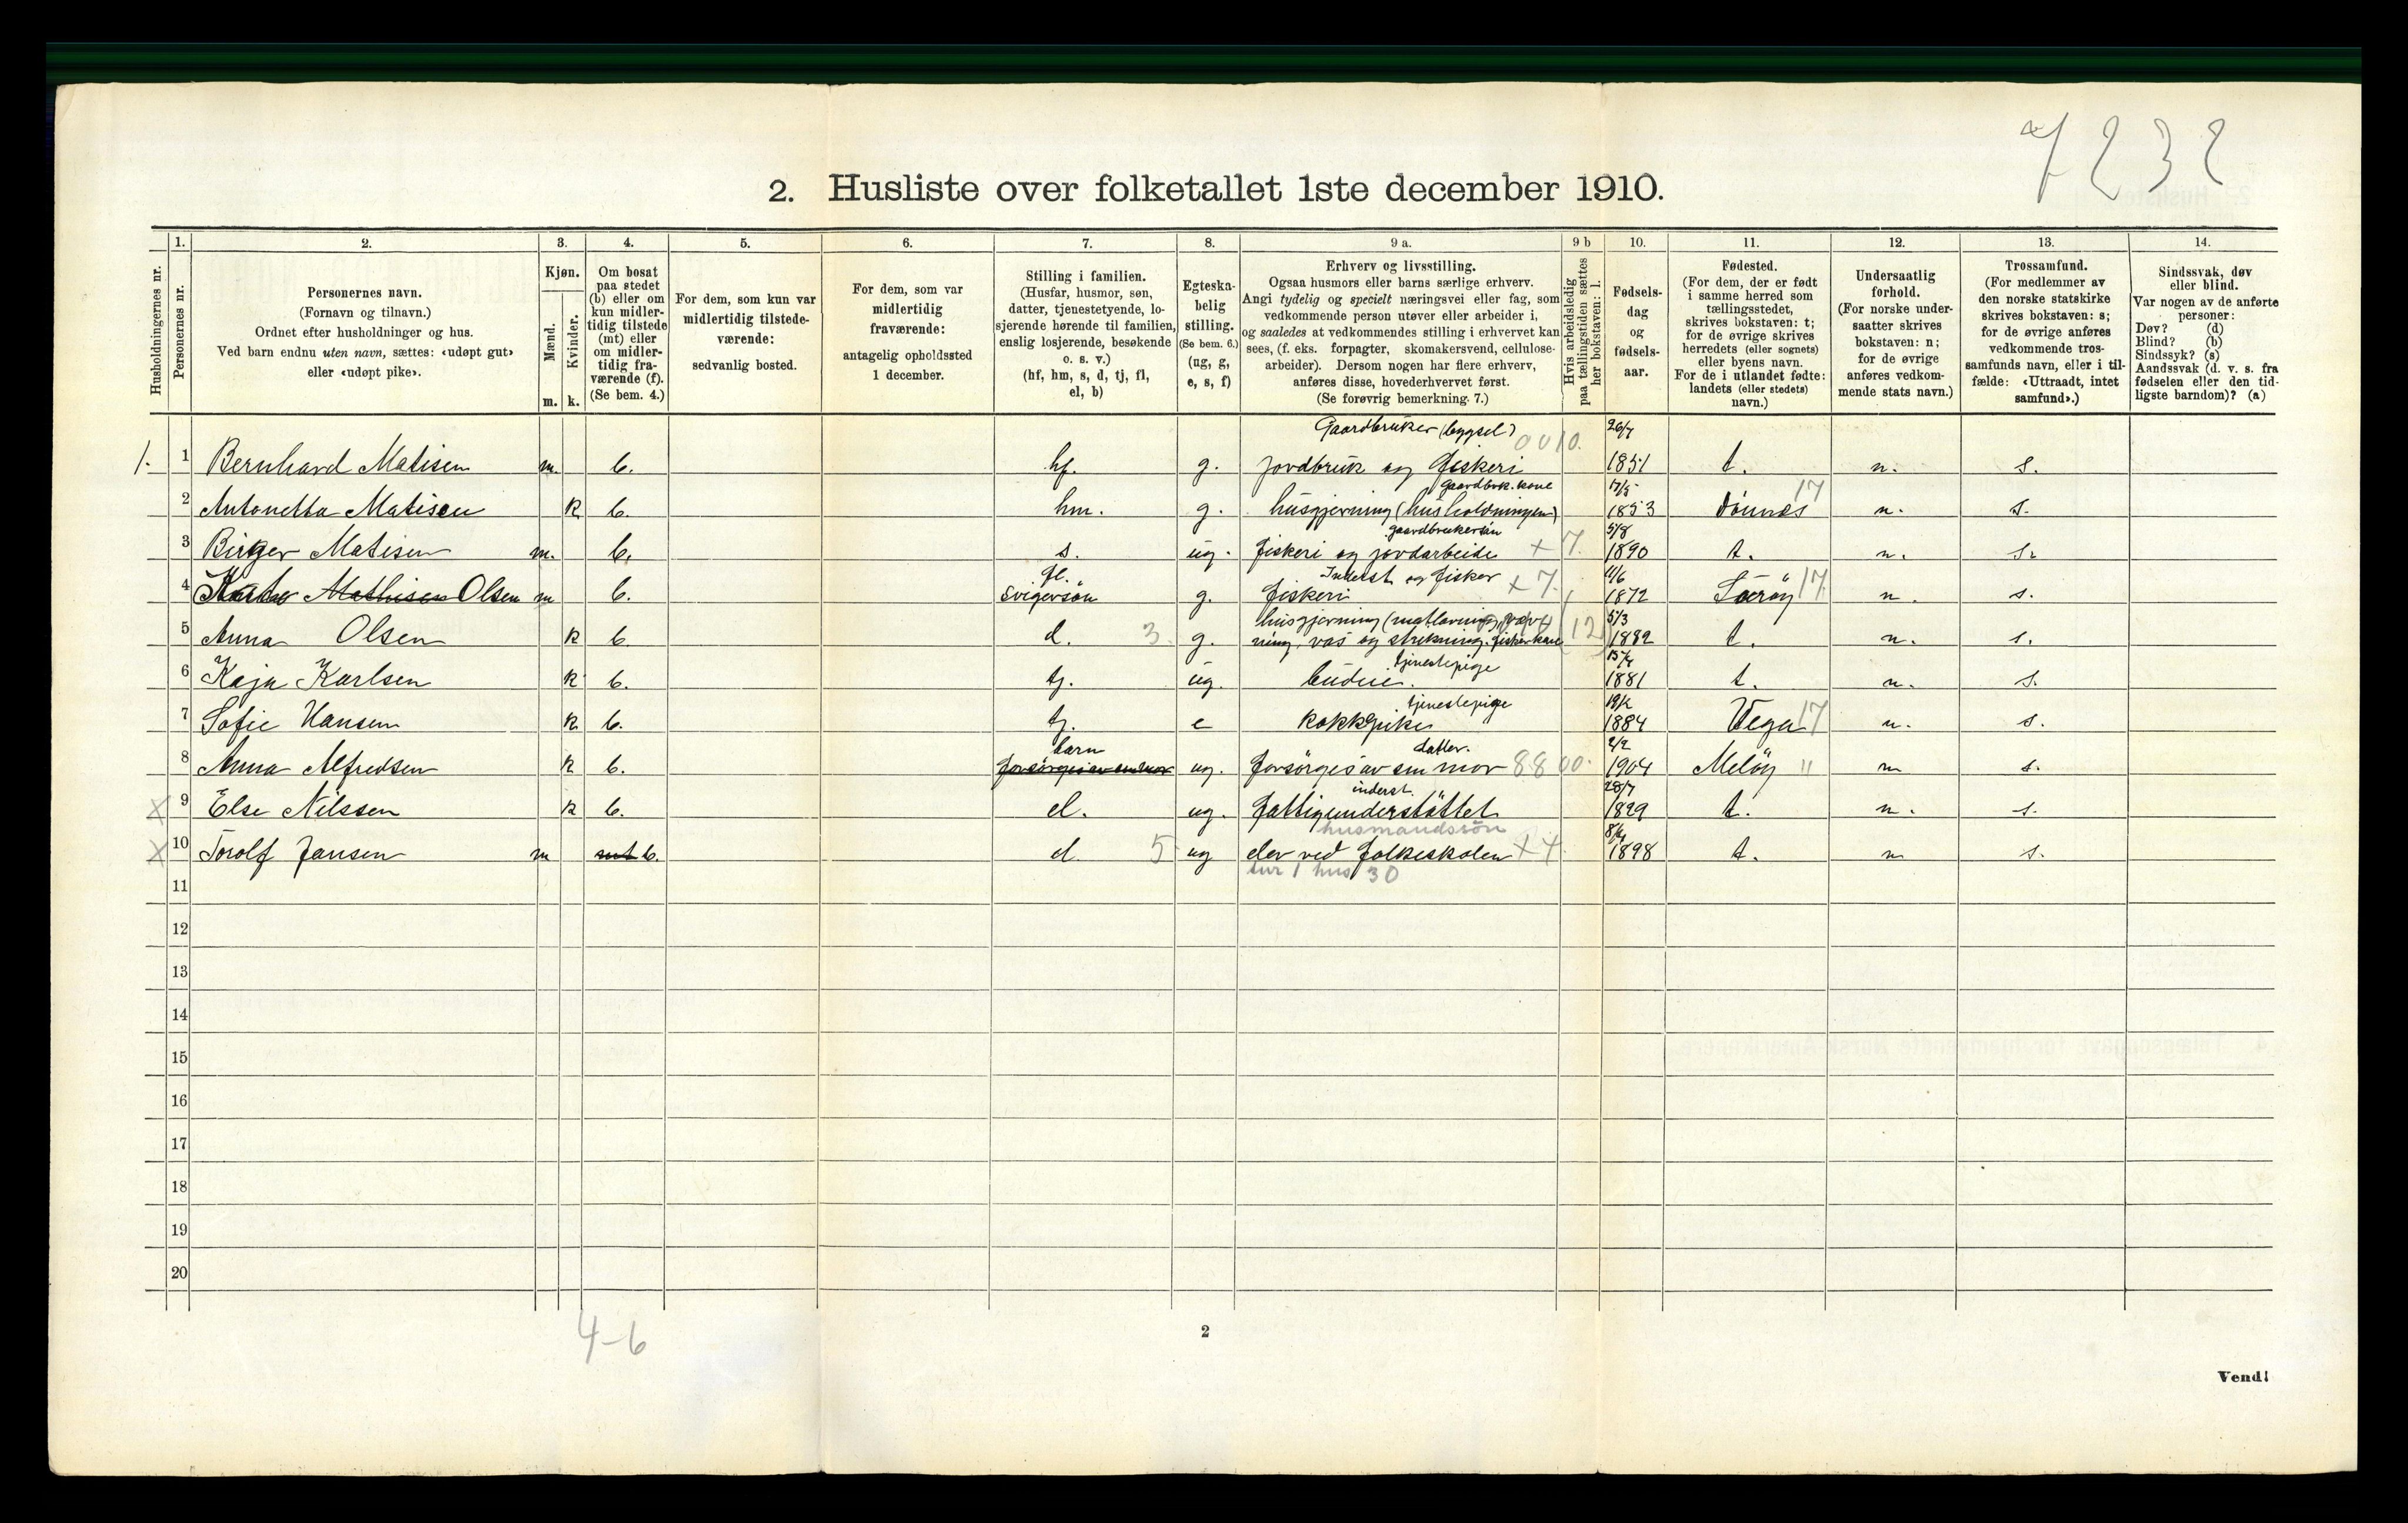 7232
2. Husliste over folketallet 1ste december 1910.
1. 2. 3. 4. 5. 6. 7. 8. 9 a. 9 b 10. 11. 12. 13. 14.
Husholdningernes nr.
Personernes nr.
Personernes navn.
(Fornavn og tilnavn.)
Ordnet efter husholdninger og hus.
Ved barn endnu uten navn, sættes: «udøpt gut»
eller «udøpt pike».
Kjøn.
Mænd.
Kvinder.
m. k.
Om bosat
paa stedet
(b) eller om
kun midler-
tidig tilstede
(mt) eller
om midler-
tidig fra-
værende (f).
(Se bem. 4.)
For dem, som kun var
midlertidig tilstede-
værende:
sedvanlig bosted.
For dem, som var
midlertidig
fraværende:
antagelig opholdssted
1 december.
Stilling i familien.
(Husfar, husmor, søn,
datter, tjenestetyende, lo-
sjerende hørende til familien,
enslig losjerende, besøkende
o. s. v.)
(hf, hm, s, d, tj, fl,
el, b)
Egteska-
belig
stilling.
(Se bem. 6.)
(ug, g,
e, s, f)
Erhverv og livsstilling.
Ogsaa husmors eller barns særlige erhverv.
Angi tydelig og specielt næringsvei eller fag, som
vedkommende person utøver eller arbeider i,
og saaledes at vedkommendes stilling i erhvervet kan
sees, (f. eks. forpagter, skomakersvend, cellulose-
arbeider). Dersom nogen har flere erhverv,
anføres disse, hovederhvervet først.
(Se forøvrig bemerkning 7.)
Hvis arbeidsledig
paa tællingstiden sættes
her bokstaven: l.
Fødsels-
dag
og
fødsels-
aar.
Fødested.
(For dem, der er født
i samme herred som
tællingsstedet,
skrives bokstaven: t;
for de øvrige skrives
herredets (eller sognets)
eller byens navn.
For de i utlandet fødte:
landets (eller stedets)
navn.)
Undersaatlig
forhold.
(For norske under-
saatter skrives
bokstaven: n;
for de øvrige
anføres vedkom-
mende stats navn.)
Trossamfund.
(For medlemmer av
den norske statskirke
skrives bokstaven: s;
for de øvrige anføres
vedkommende tros-
samfunds navn, eller i til-
fælde: «Uttraadt, intet
samfund».)
Sindssvak, døv
eller blind.
Var nogen av de anførte
personer:
Døv? (d)
Blind? (b)
Sindssyk? (s)
Aandssvak (d. v. s. fra
fødselen eller den tid-
ligste barndom)? (a)
Gaardbruker (bygsel) 0010. 26/7
1. 1 Bernhard Matisen m. b. hf. g. jordbruk og fiskeri 1851 t. n. s.
gaardbrk. kone 17/5 17
2 Antonetta Matisen k b. hm. g. husgjerning (husholdningen) 1853 Dønnes n. s.
gaardbrukersøn 5/8
3 Birger Matisen m. b. s. ug. fiskeri og jordarbeide +7. 1890 t. n. s.
fl. Inderst og fisker 11/6
4 Mathisen Olsen m b. svigersøn g. fiskeri +7. 1872 17 n. s.
husgjerning 5/3
5 Anna Olsen k b. d. 3. g. ning, vas og strikning. fiskerkone 12 1882 t. n. s.
tjenestepige 15/4
6 Kaja Karlsen k b. tj. ug. budeie. 1881 t. n. s.
tjenestepige 19/2
7 Sofie Hansen k b. tj. e kokkepike 1884 Vega 17 n. s.
barn datter. 2/2
8 Anna Alfredsen k b. forsørges av sin mor ug. forsørges av sin mor 8800. 1904 Meløy 11 n s.
inderst. 28/7
X 9 Else Nilssen k b. el. ug. fattigunderstøttet 1829 t. n. s.
husmandssøn
X 10 Torolf Jansen m mt b. el 5 ug elev ved folkeskolen +4 1898 t. n s.
hus 30
11
12
13
14
15
16
17
18
19
20
4-6
2
Vend!